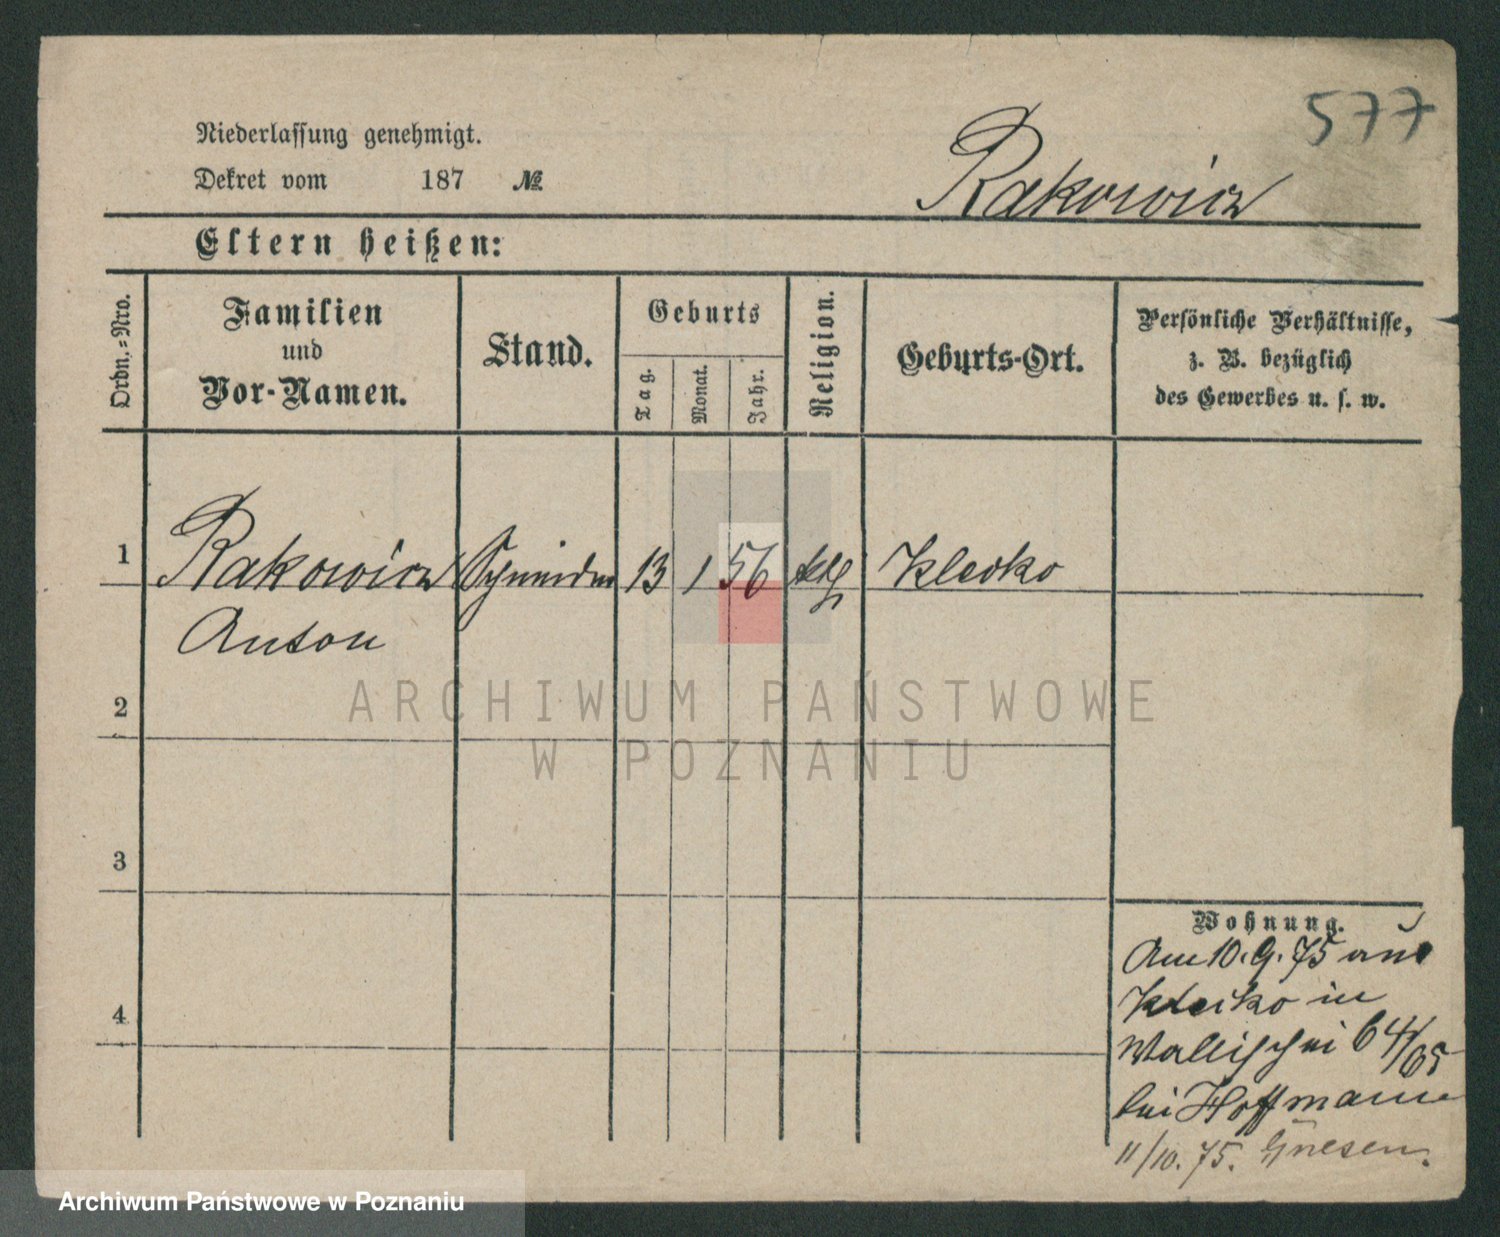 577
Niederlassung genehmigt.
Dekret vom 187 №
Rakowicz
Eltern heißen:
Ordn.-Nro.
Familien
und
Vor-Namen.
Stand.
Geburts
Tag.
Monat.
Jahr.
Religion.
Geburts-Ort.
Persönliche Verhältnisse,
z. B. bezüglich
des Gewerbes u. s. w.
1 Rakowicz 13 1 56 kth Klecko
Anton
2
3
4
Wohnung.
Am 10.9.75 aus
Klecko in
Wallischei 64/65
bei Hoffmann
11/10.75. Gnesen.
ARCHIWUM PAŃSTWOWE
W POZNANIU
Archiwum Państwowe w Poznaniu